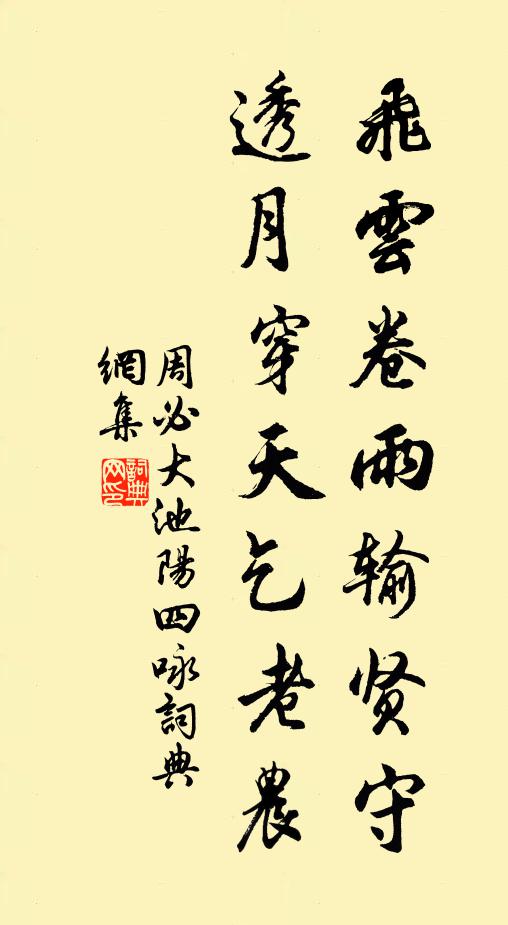 飛雲卷雨输贤守
透月穿天乞老農
周必大池陽四咏詞典
網集
詞典网印